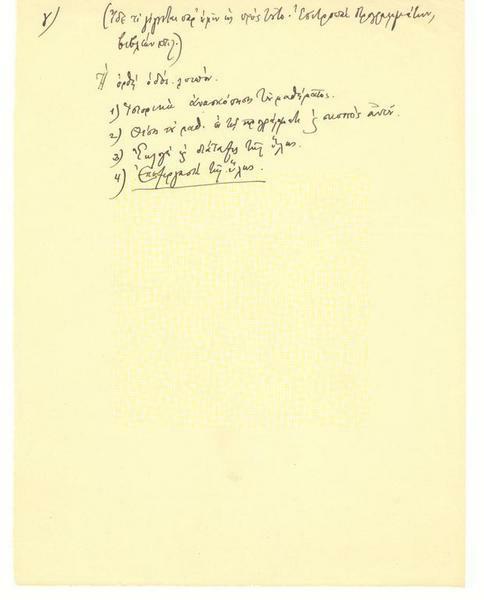 γ) (Ἴδε τί γίγνεται παρ' ἡμῖν ὡς πρὸς τοῦτο. Ἐπιτροπαὶ Προγραμμάτων,
βιβλίων κτλ.)
Ἡ ὀρθὴ ὁδὸς λοιπόν.
1) Ἱστορικὴ ἀνασκόπησις τοῦ μαθήματος.
2) Θέσις τοῦ μαθ. ἐν τῷ προγράμματι ἢ σκοπὸς αὐτοῦ.
3) Ἐκλογὴ ἢ διάταξις τῆς ὕλης.
4) Ἐπεξεργασία τῆς ὕλης.